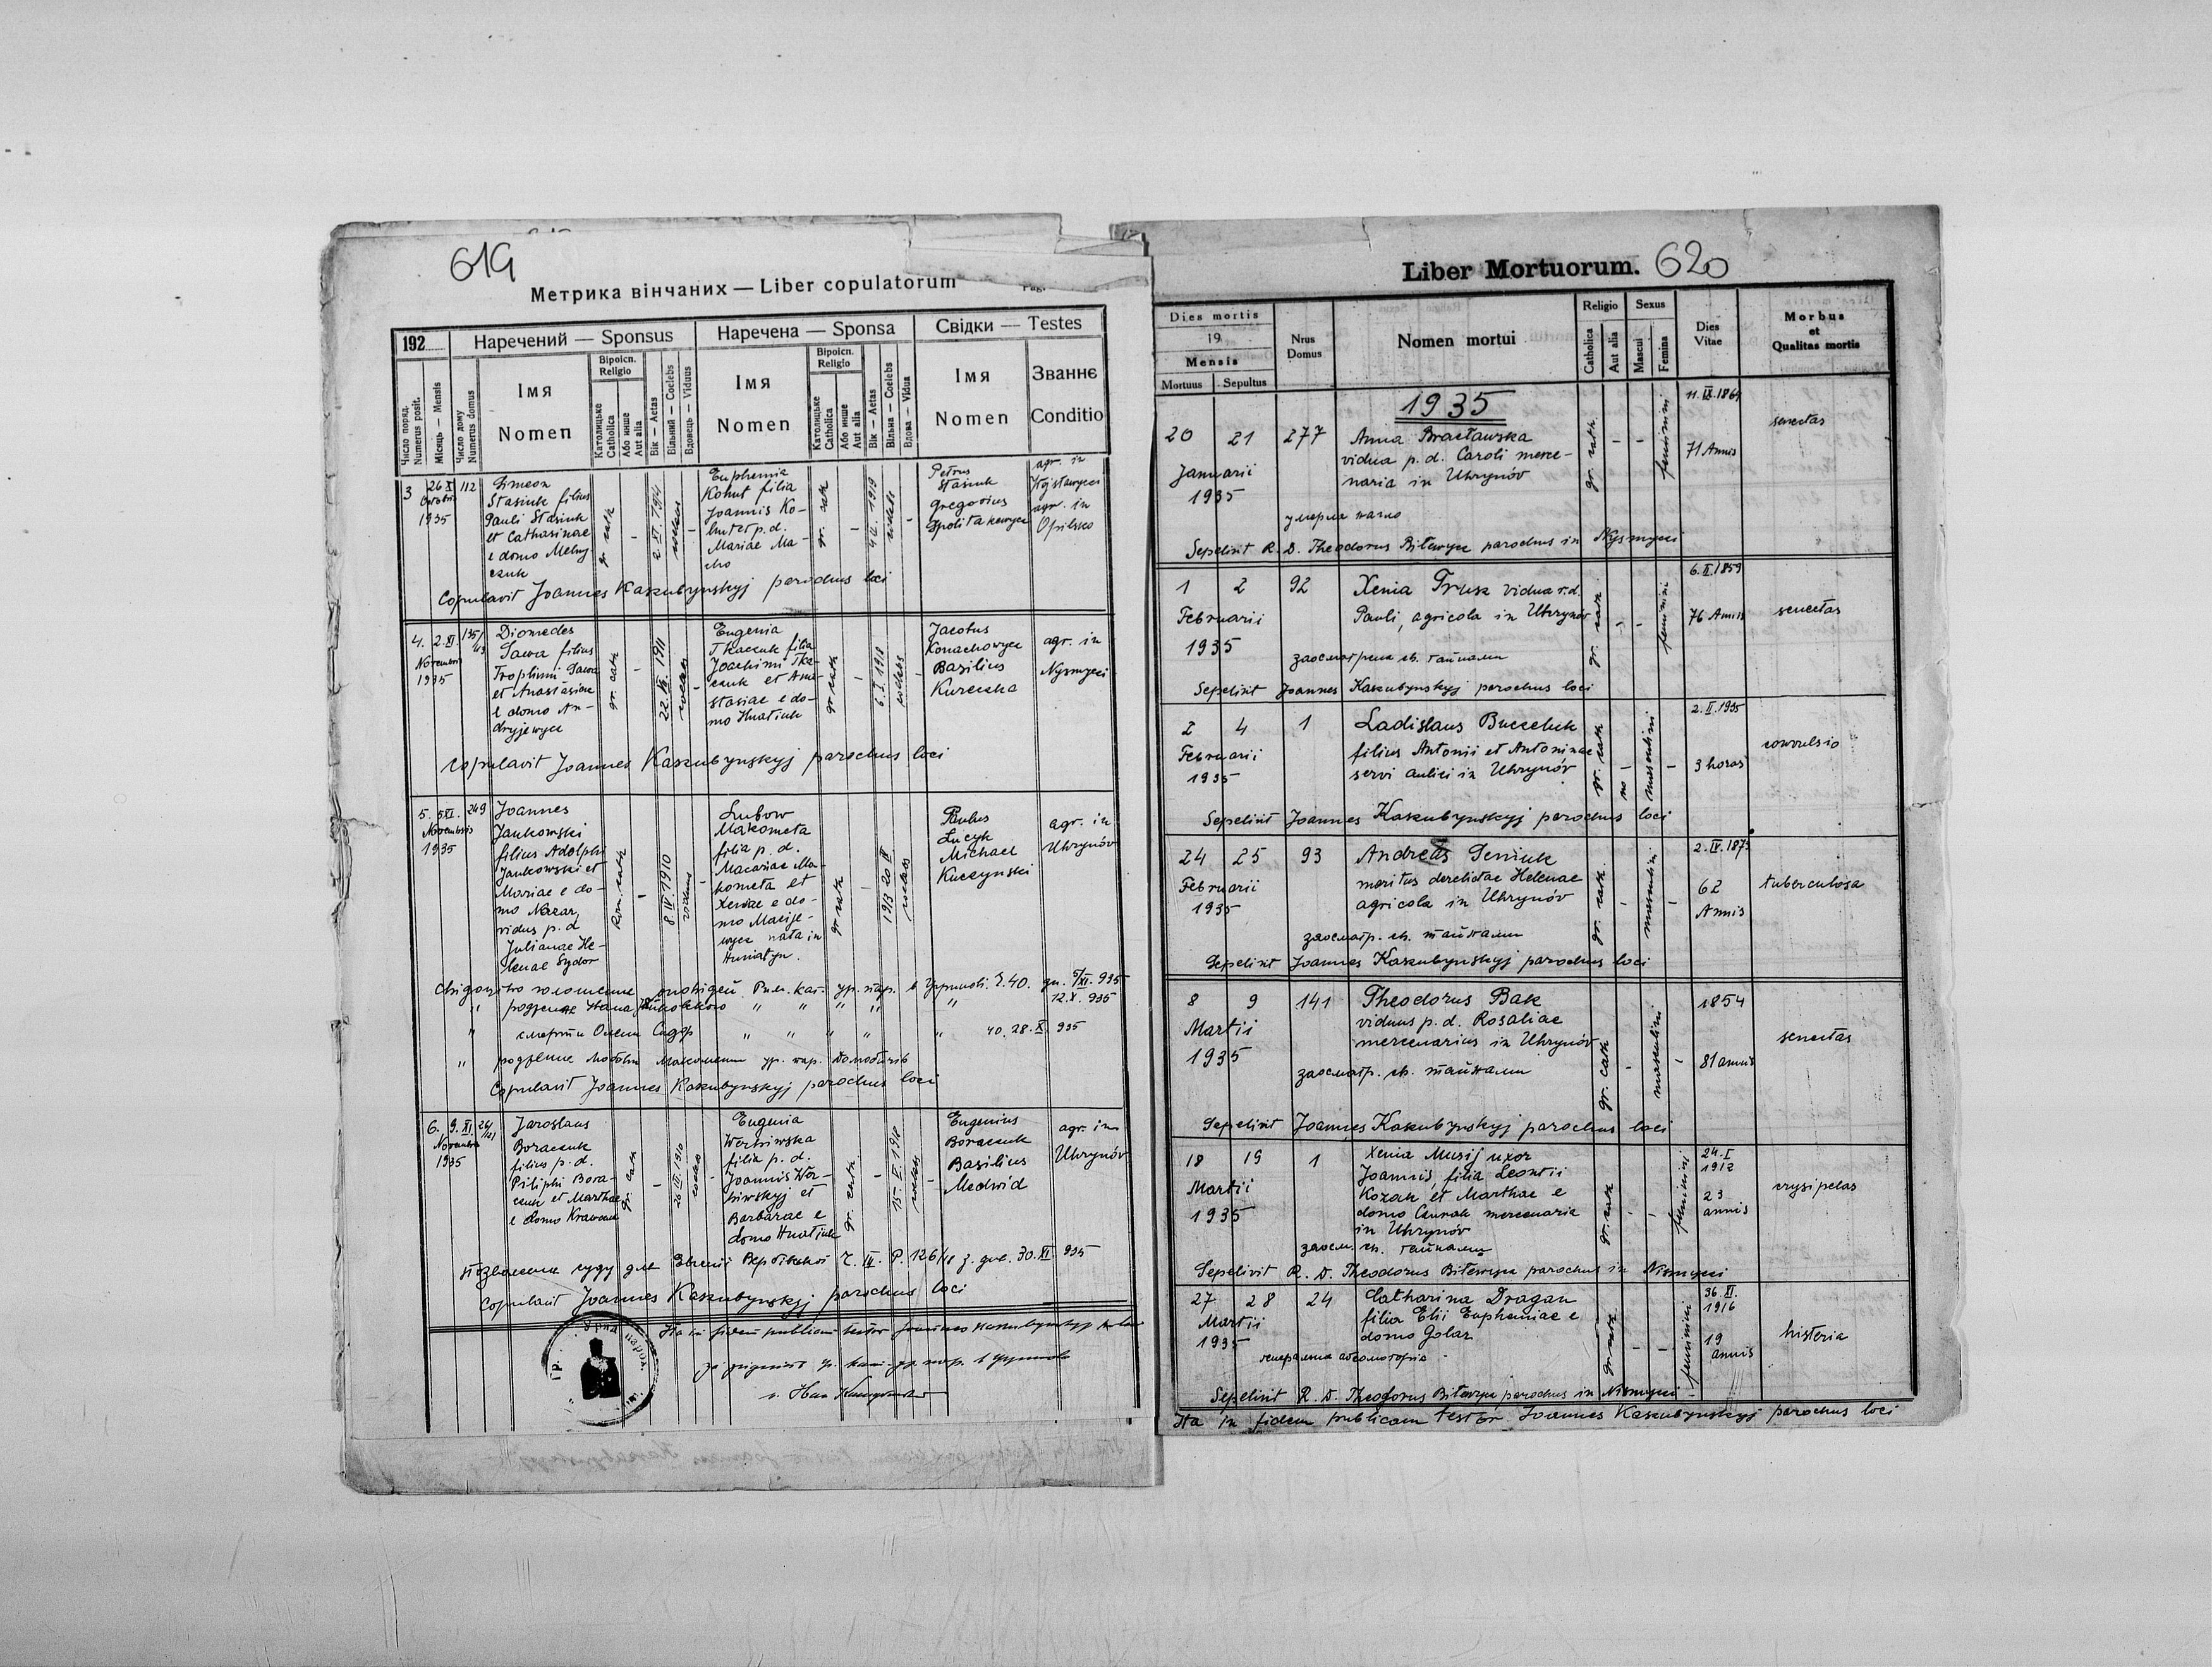 619
Метрика вінчаних — Liber copulatorum
192
Наречений — Sponsus
Наречена — Sponsa
Свідки — Testes
Число поряд.
Numerus posit.
Місяць — Mensis
Число дому
Numerus domus
Імя
Nomen
Віроісп.
Religio
Католицьке
Catholica
Або инше
Aut alia
Вік — Aetas
Вільний — Coelebs
Вдовець — Viduus
Імя
Nomen
Віроісп.
Religio
Католицьке
Catholica
Або инше
Aut alia
Вік — Aetas
Вільна — Coelebs
Вдова — Vidua
Імя
Nomen
Званнє
Conditio
3
26 X
1935
112
Simeon
Stasiuk filius
Pauli Stasiuk
et Catharinae
e domo Melny-
czuk
gr. cath
2. XI. 1914
Euphemia
Kohut filia
Joannis Ko-
hut et p. d.
Mariae Ma-
cho
gr. cath
Petrus
Stasiuk
Gregorius
agr. in
agr. in
Opilsko
Copulavit Joannes Kaszubynskyj parochus loci
4.
2. XI.
Novembris
1935
Diomedes
Sawa filius
Trophimi Sawa
et Anastasiae
e domo An-
dryjewycz
gr. cath
22. VI. 1911
Eugenia
Tkaczuk filia
Joachimi Tka-
czuk et Ana-
stasiae e do-
mo Hnatiuk
gr. cath
6. I. 1918
Jacobus
Konachowycz
Basilius
Kureczka
agr. in
Nysmyczi
copulavit Joannes Kaszubynskyj parochus loci
5.
5 XI.
Novembris
1935
249
Joannes
Jankowski
filius Adolphi
Jankowski et
Mariae e do-
mo Nazar,
vidus p. d
Julianae He-
lenae Sydor
Rom. cath
8. IV. 1910
viduus
Lubow
Makometa
filia p. d.
Macariae Ma-
kometa et
Xeniae e do-
mo Macije-
wycz nata in
gr cath
1913 20 II
Paulus
Lucyk
Michael
Kuczynski
agr. in
Uhrynów
12. X. 935
смерти Олени Сидор
40. 28. X 935
Copulavit Joannes Kaszubynskyj parochus loci
6.
9. XI.
Novembris
1935
Jaroslaus
Boraczuk
filius p. d.
Piliphi Bora-
czuk et Marthae
e domo Krawczuk
gr. cath
26 III 1910
Eugenia
Werbiwska
filia p. d.
Joannis Wer-
biwskyj et
Barbarae e
domo Hnatiuk
gr. cath
15. V. 1918
Eugenius
Boraczuk
Basilius
Medwid
agr. in
Uhrynów
Copulavit Joannes Kaszubynskyj parochus loci
Ita in fidem publicam testor Joannes Kaszubynskyj
Liber Mortuorum. 620
Dies mortis
19
Mensis
Mortuus
Sepultus
Nrus
Domus
Nomen mortui
Religio
Catholica
Aut alia
Sexus
Mascul
Femina
Dies
Vitae
Morbus
et
Qualitas mortis
1935
20
21
Januarii
1935
277
Anna Bracławska
vidua p. d. Caroli merce-
naria in Uhrynów
gr. cath.
feminini
11. IX. 1864
71 Annis
senectas
умерла нагло
Sepelivit R. D. Theodorus Biłewycz parochus in Nysmyczi
1
2
Februarii
1935
92
Xenia Trusz vidua p. d.
Pauli, agricola in Uhrynów
gr. cath
feminini
6. II. 1859
76 Annis
senectas
заосмотрена св. тайнами
Sepelivit Joannes Kaszubynskyj parochus loci
2
4
Februarii
1935
1
Ladislaus Buczeluk
filius Antonii et Antoninae
servi aulici in Uhrynów
gr. cath
no
masculini
2. II. 1935
3 horas
convulsio
Sepelivit Joannes Kaszubynskyj parochus loci
24
25
Februarii
1935
93
Andreas Seniuk
maritus derelictae Helenae
agricola in Uhrynów
gr. cath
masculini
2. IV. 1873
62
Annis
tuberculosa
заосмотр. св. тайнами
Sepelivit Joannes Kaszubynskyj parochus loci
8
9
Martii
1935
141
Theodorus Bak
viduus p. d. Rosaliae
mercenarius in Uhrynów
gr. cath
masculini
1854
81 annis
senectas
заосмотр. св. тайнами
Sepelivit Joannes Kaszubynskyj parochus loci
18
19
Martii
1935
1
Xenia Musij uxor
Joannis, filia Leontii
Kozak et Marthae e
domo Czunak mercenaria
in Uhrynów
gr. cath
feminini
24. I
1912
23
annis
erysipelas
заосм. св. тайнами
Sepelivit R. D. Theodorus Biłewycz parochus in Nismyczi
27
28
Martii
1935
24
Catharina Dragan
filia Elii Euphemiae e
domo Golar
gr. cath
feminini
1916
19
annis
histeria
Sepelivit R. D. Theodorus Biłewycz parochus in Nismyczi
Ita in fidem publicam testor Joannes Kaszubynskyj parochus loci